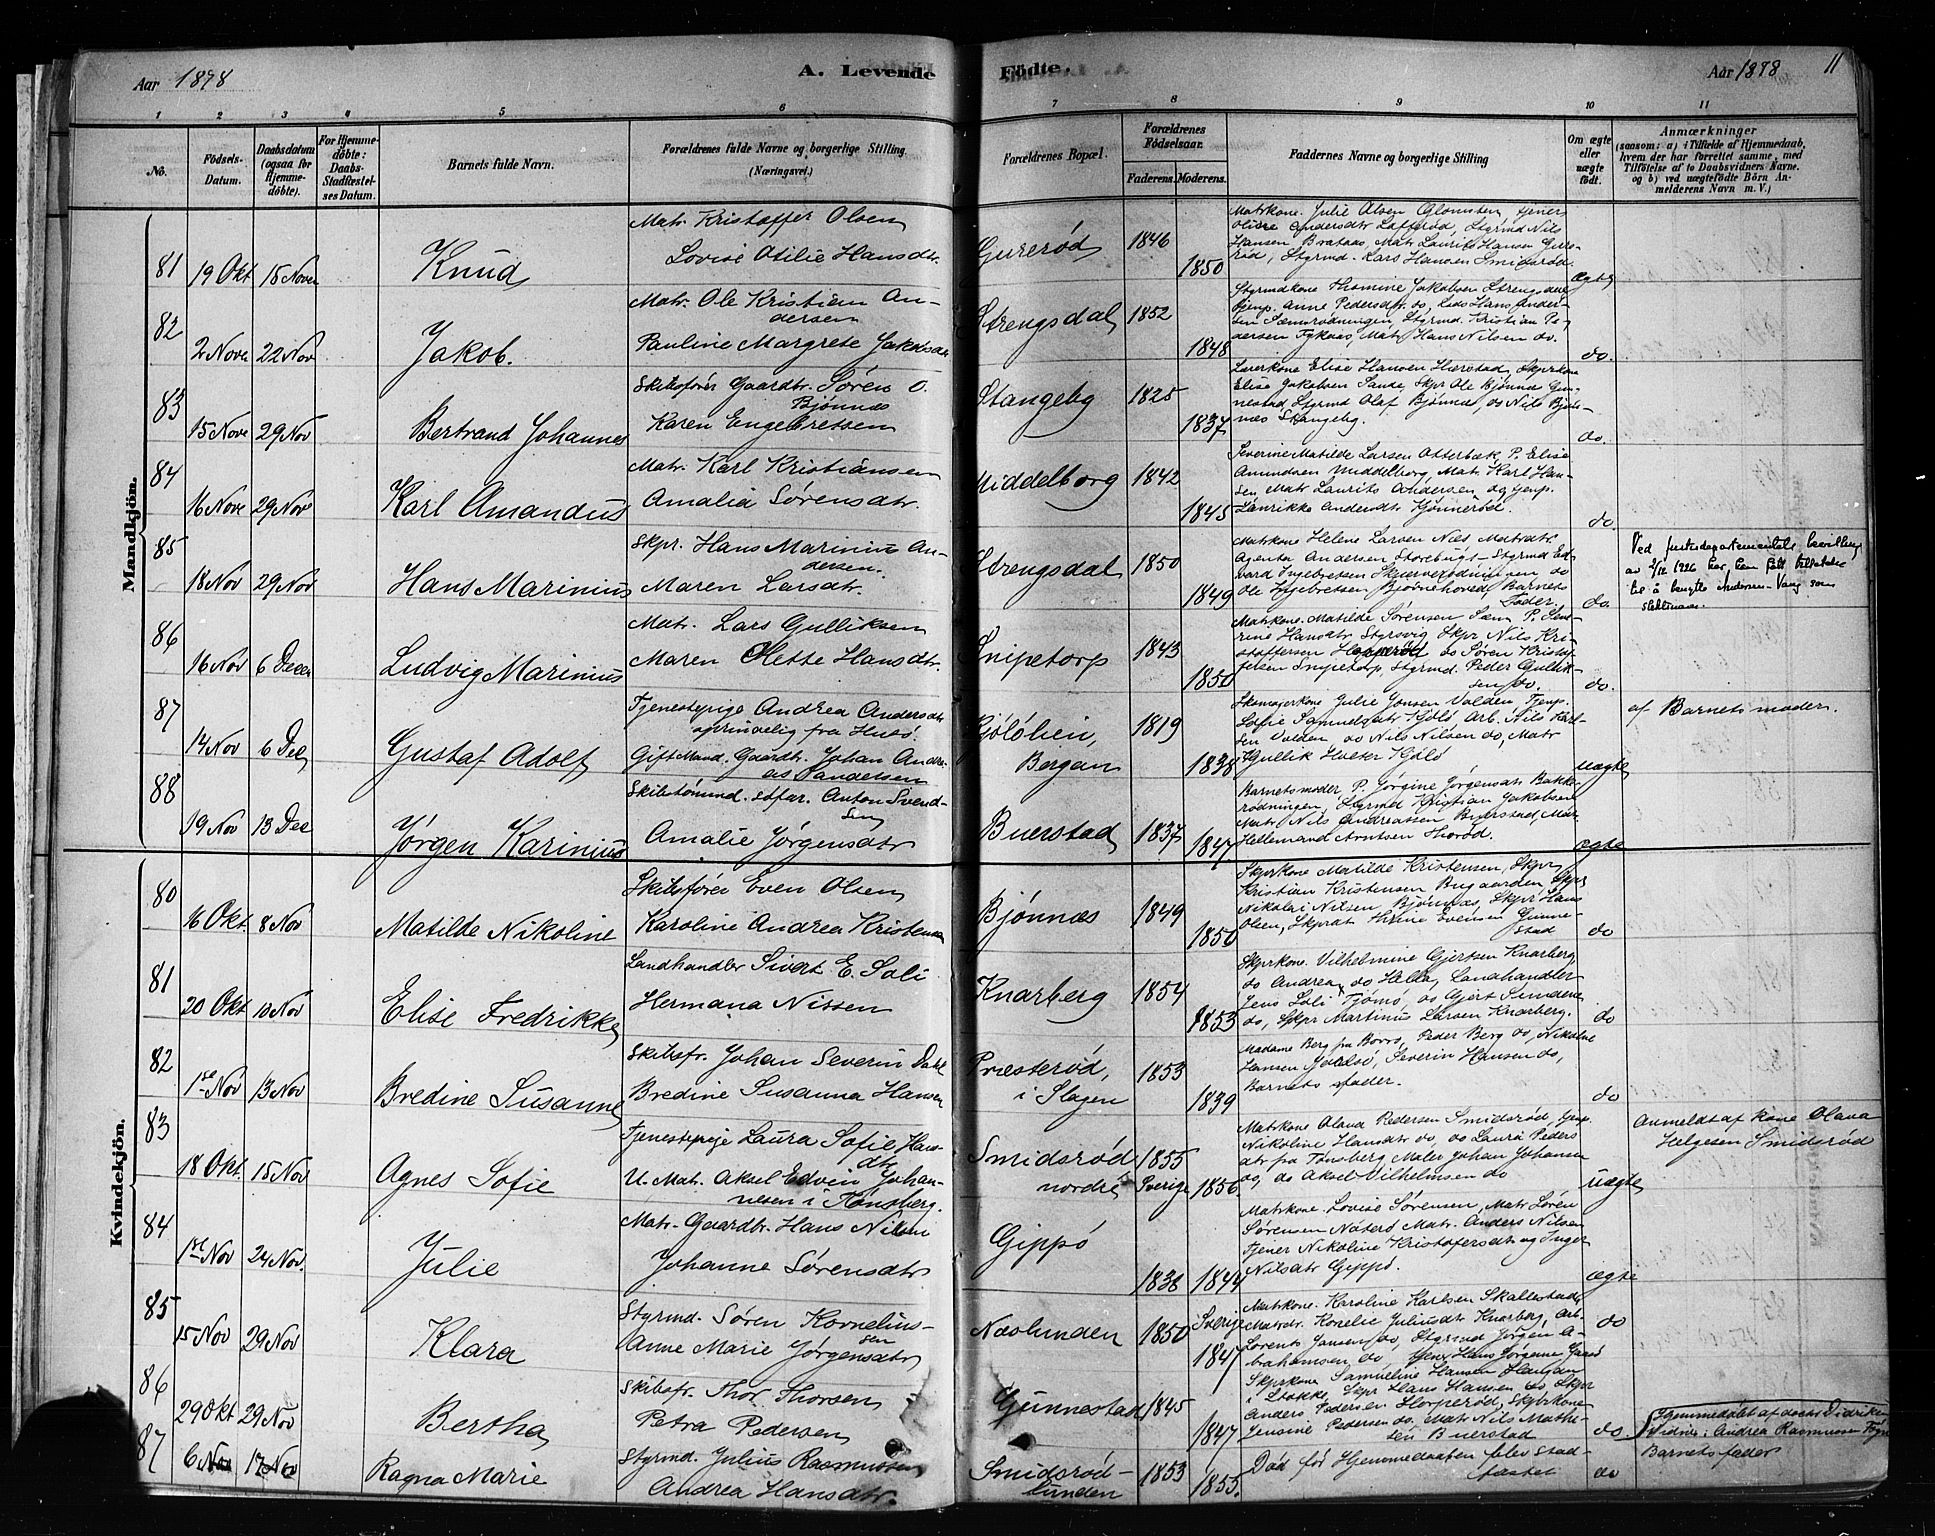 Aar 1878
A. Levende
Fødte.
Aar 1878
11
1 2 3 4 5 6 7 8 9 10 11
No.
Fødsels-
Datum.
Daabsdatum
(ogsaa for
Hjemme-
døbte).
For Hjemme-
døbte:
Daabs-
Stadfæstel-
ses Datum.
Barnets fulde Navn.
Forældrenes fulde Navne og borgerlige Stilling
(Næringsvei.)
Forældrenes Bopæl.
Forældrenes
Fødselsaar.
Faderens. Moderens.
Faddernes Navne og borgerlige Stilling
Om ægte
eller
uægte
født.
Anmærkninger
(saasom: a) i Tilfælde af Hjemmedaab,
hvem der har forrettet samme, med
Tilføielse af to Daabsvidners Navne.
og b) ved uægtefødte Børn An-
melderens Navn m. V.)
Mandkjøn.
81 19 Okt 15 Nove Knud
Matr. Kristoffer Olsen
Lovise Otilie Hansdtr.
Gurerød 1846 1850
Matrkone. Julie Olsen Glomsten, tjener
Hansen Brataas, Matr Laurits Hansen Gure-
rød, Styrmd. Lars Hansen Smidsrød.
ægte
82 2 Nove 22 Nov Jakob.
Matr. Ole Kristian An-
dersen
Pauline Margrete Jakobsdtr
Strengsdal 1852 1848
Styrmdkone Thomine Jakobsen Strengsdal
Tjenp. Anne Pedersdtr. do,
Styrmd. Kristian Pe-
dersen Matr Hans Nilsen do.
do.
83 15 Nove 29 Nov Bertrand Johannes
Skibsfører Gaardbr. Søren O.
Bjønnes
Karen Engebretsen
Stangeby 1825 1837
Elise Jakobsen Sande, Skpr Ole Bjønnes Gun-
nestad Styrmd Olaf Bjønnes, do Nils Bjøn-
næs Stangeby.
do.
84 16 Nove 29 Nov Karl Amandus
Matr. Karl Kristiansen
Amalia Sørensdtr.
Middelborg 1842 1845
Severine Matilde Larsen Otterbæk, P. Elise
Amundsen Middelborg, Matr. Karl Han-
sen, Matr Laurits Andersen, og tjenp.
Laurikke Andersdtr Tjønnerød.
do.
85 18 Nov 29 Nov Hans Marinius
Skpr. Hans Marinius An-
dersen.
Maren Larsdtr.
Strengsdal 1850 1849
Matrkone Helene Larsen Næs
Agenta Andersen Storebugt Styrmd Ed-
vard Ingebretsen Skjerverødningen do
Ole Ingebretsen Bjørnehoved, Barnets
Fader.
do.
Ved justisdepartementets bevilling
av 1926 har han fått tillatelse
til å benytte Andersen-Vang som
slektsnavn.
86 16 Nov 6 Decer Ludvig Marinius
Matr. Lars Gulliksen
Maren Olette Hansdtr.
Snipetorp 1843 1850
Matrkone. Matilde Sørensen Sem
rine Hansdtr Styrsvig Skpr Nils Kri-
stoffersen do Søren Kristof-
fersen Snipetorp, Styrmd. Peder Gullik-
sen do.
do.
87 14 Nov 6 Dec Gustaf Adolf
Tjenestepige Andrea Andersdtr
oprindelig fra Hvasø.
Gift Mand. Gaardbr. Johan Andre-
as Andersen
Kjøløhien,
Bergan 1819 1838
Skomagerkone Julie Jonsen Volden, Tjenp.
Sofie Samuelsdtr Kjølø Arb. Nils Karl-
sen Volden do Nils Nilsen do, Matr
Gullik Holter Kjølø
uægte
af Barnets moder.
88 19 Nov 13 Dec Jørgen Karinius
Skibstømmd. Anton Svend-
sen
Amalie Jørgensdtr
Buerstad 1837 1847
Barnets moder P. Jørgine Jørgensdtr Bakke-
rødningen, Styrmd Kristian Jakobsen
Matr. Nils Andreassen Buerstad, Matr
Hellemand Arntsen Thorød.
ægte
Kvindekjøn.
80 16 Okt. 8 Nov Matilde Nikoline
Skibsfører Even Olsen
Karoline Andrea Kristensen
Bjønnæs 1849 1850
Skprkone Matilde Kristensen, Skpr
Kristian Kristensen Bugaarden, Skpr
Nikolai Nilsen Bjønnæs, Skpr Hans
Olsen, Skprdtr Evensen Gunne-
stad
do
81 20 Okt 10 Nov Elise Fredrikke
Landhandler Sivert E. Soli
Hermana Nissen
Knarberg 1854 1853
Skprkone. Vilhelmine Gjertsen Knarberg
do Andrea do Hella, Landhandler
Jens Soli Tjømø, do Gjert
do, Skpr Martinus Larsen Knarberg.
do
82 1ste Nov 13 Nov Bredine Susanne
Skibsfr. Johan Severin Dahl
Bredine Susanna Hansen
Præsterød,
i Slagen 1853 1839
Madame Berg fra Borre, Peder Berg do, Nikoline
Hansen Severin Hansen do,
Barnets fader.
do
83 18 Okt. 15 Nov Agnes Sofie
Tjenestepige Laura Sofie Hans-
dtr
U. Mat. Aksel Edvin Johan-
nesen i Tønsberg.
Smidsrød
nordre 1855
Sverige 1856
Matrkone Olava Pedersen Smidsrød, tjenp.
Nikoline Hansdtr do, do Laura Peders
dtr fra Tønsberg Maler Johan Johansen
do, do Aksel Vilhelmsen do
uægte
Anmeldt af kone Olava
Helgesen Smidsrød
84 1ste Nov 24 Nov. Julie
Matr. Gaardbr. Hans Nilsen
Johanne Sørensdtr
Gippø 1838 1844
Matrkone. Lovise Sørensen, Matr Søren
Sørensen Nøterø Matr. Anders Nilsen
Tjener Nikoline Kristofersdtr og Inger
Nilsdtr Gippø.
ægte
85 15 Nov 29 Nov Klara
Styrmd. Søren Kornelius-
sen
Anne Marie Jørgensdtr
Næslunden 1850 Sverige
1847
Matrkone. Karoline Karlsen Skallestad,
Matrdtr. Kornelie Juliusdtr Knarberg, Arb.
Lorents Jansen do, Styrmd Jørgen A-
brahamsen do
do
86 29 Okt 29 Nov Bertha
Skibsfr. Thor Thorsen
Petra Pedersen
Gunnestad 1845 1847
Skprkone Samueline Hansen Haugan
i Stokke, Skpr Hans Hansen do Skpr
Anders Pedersen Horperød, Skprkone
Jensine Pedersen do, Matr Nils Mathi-
sen Buerstad
do.
87 6 Nov 17 Nov Ragna Marie
Styrmd. Julius Rasmussen
Andrea Hansdtr.
Smidsrød-
lunden 1853 1855.
Død før Hjemmedaaben blev stad-
fæstet
do
Hjemmedøbt af
Vidner: Andrea Rasmussen
Barnets fader